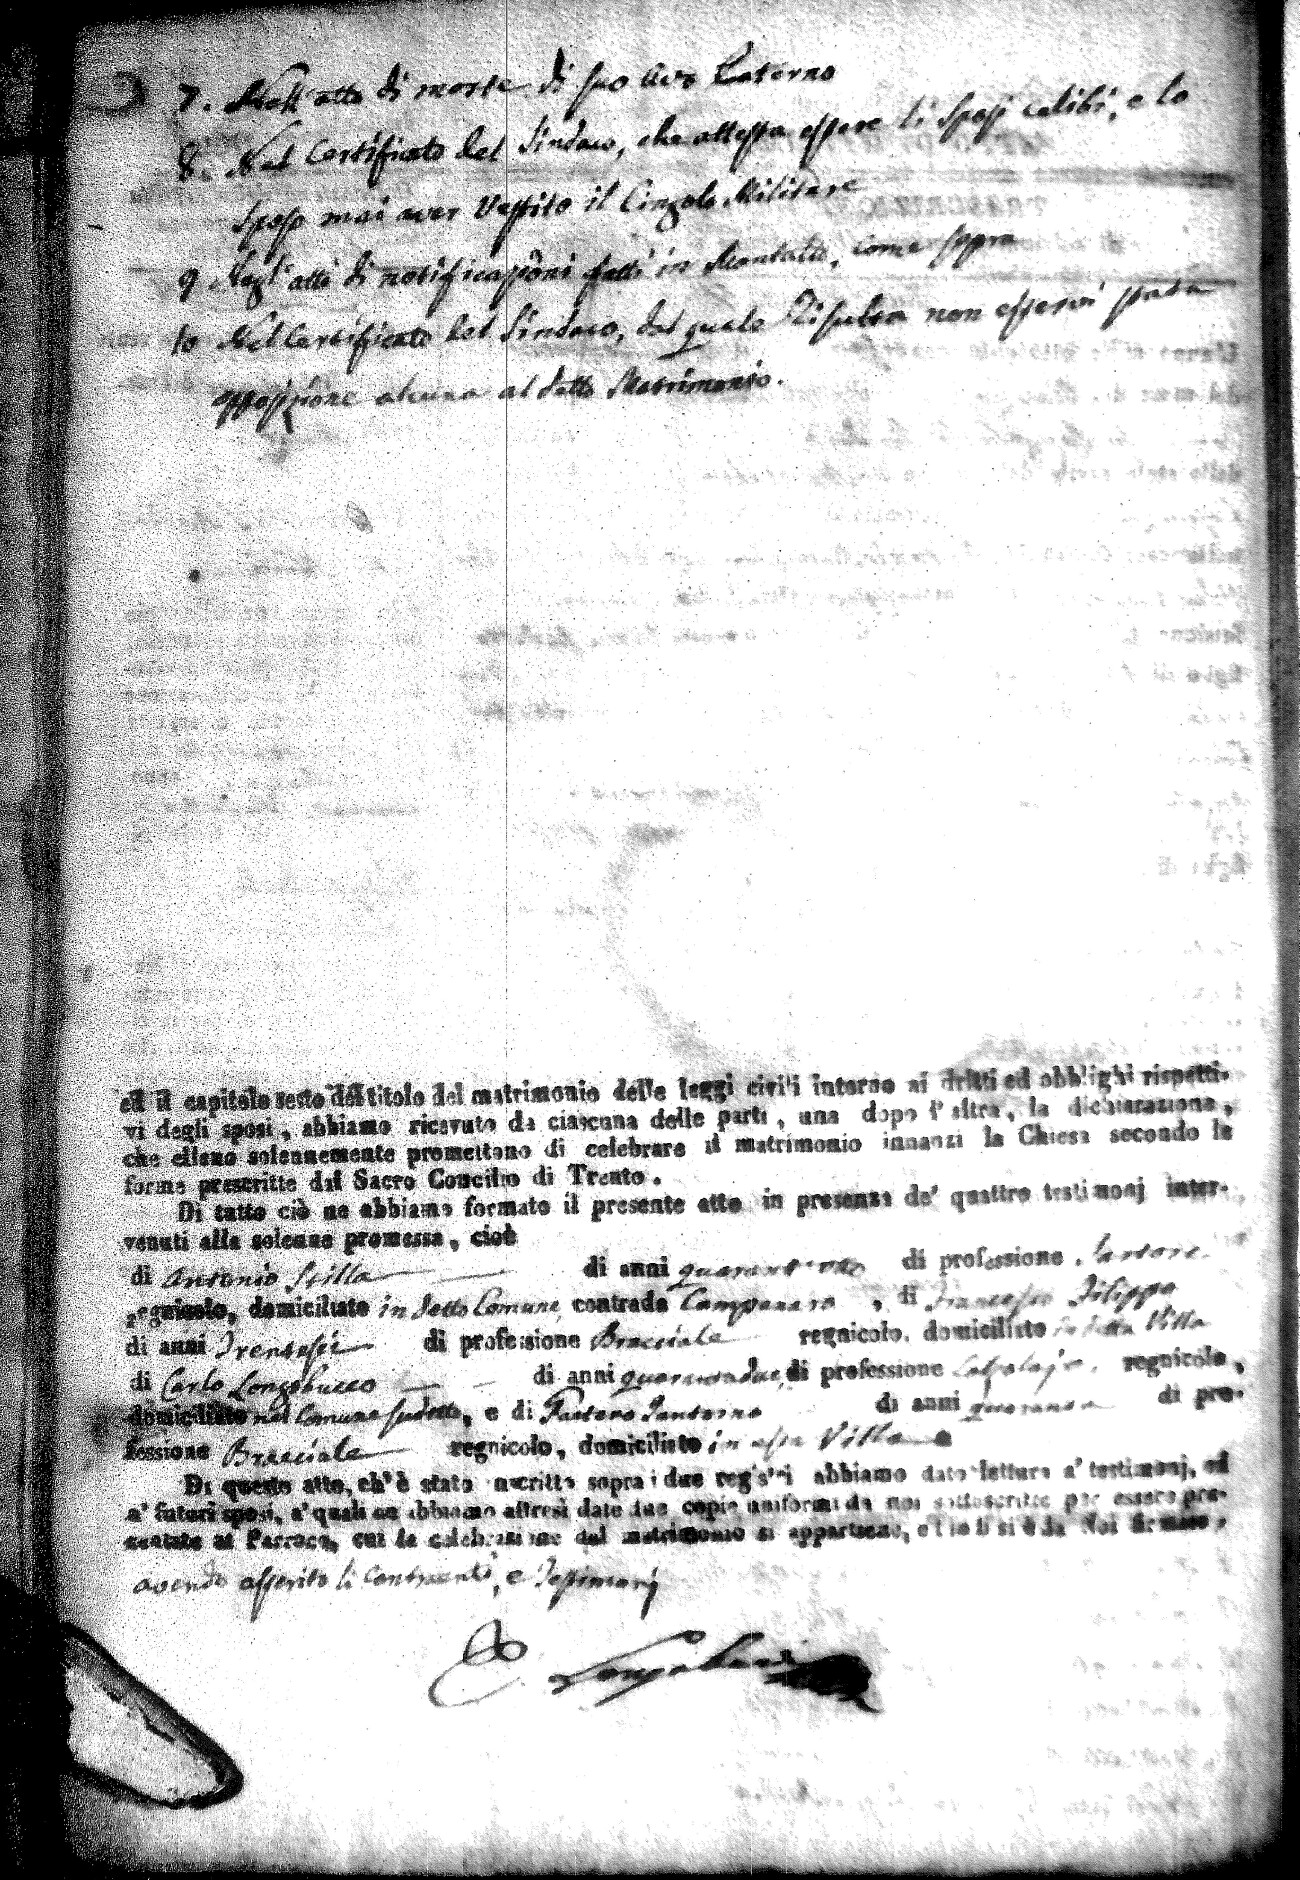 7. Nell'atto di morte di suo Avo Paterno
8. Nel Certificato del Sindaco, che attesta essere li sposi celibi, e lo
sposo mai aver vestito il Cingolo Militare
9. Negl'atti di notificazioni fatti in Mentali, come sopra
10 Nel Certificato del Sindaco, dal quale Risulta non essersi stata
opposizione alcuna al detto Matrimonio.
ed il capitolo sesto del titolo del matrimonio delle leggi civili intorno ai dritti ed obblighi rispetti-
vi degli sposi, abbiamo ricevuto da ciascuna delle parti, una dopo l'altra, la dichiarazione,
che elleno solennemente promettono di celebrare il matrimonio innanzi la Chiesa secondo le
forme prescritte dal Sacro Concilio di Trento.
Di tutto ciò ne abbiamo formato il presente atto in presenza de' quattro testimonj inter-
venuti alla solenne promessa, cioè
di Antonio Scilla di anni di professione Sartore
regnicolo, domiciliato in detto Comune contrada Campanaro, di Francesco Filippo
di anni Trentasei di professione Bracciale regnicolo, domiciliato in detta Villa
di Carlo Longobucco di anni quarantadue, di professione regnicolo,
domiciliato nel Comune sudetto, e di Gaetano Santorno di anni quaranta di pro-
fessione Bracciale regnicolo, domiciliato in essa Villa
Di questo atto, ch'è stato inscritto sopra i due registri abbiamo dato lettura a' testimonj, ed
a' futuri sposi, a' quali ne abbiamo altresì date due copie uniformi da noi sottoscritte per essere pre-
sentate al Parroco, cui la celebrazione del matrimonio si appartiene, e indi si è da Noi firmato,
avendo asserito li Contraenti, e Testimonj